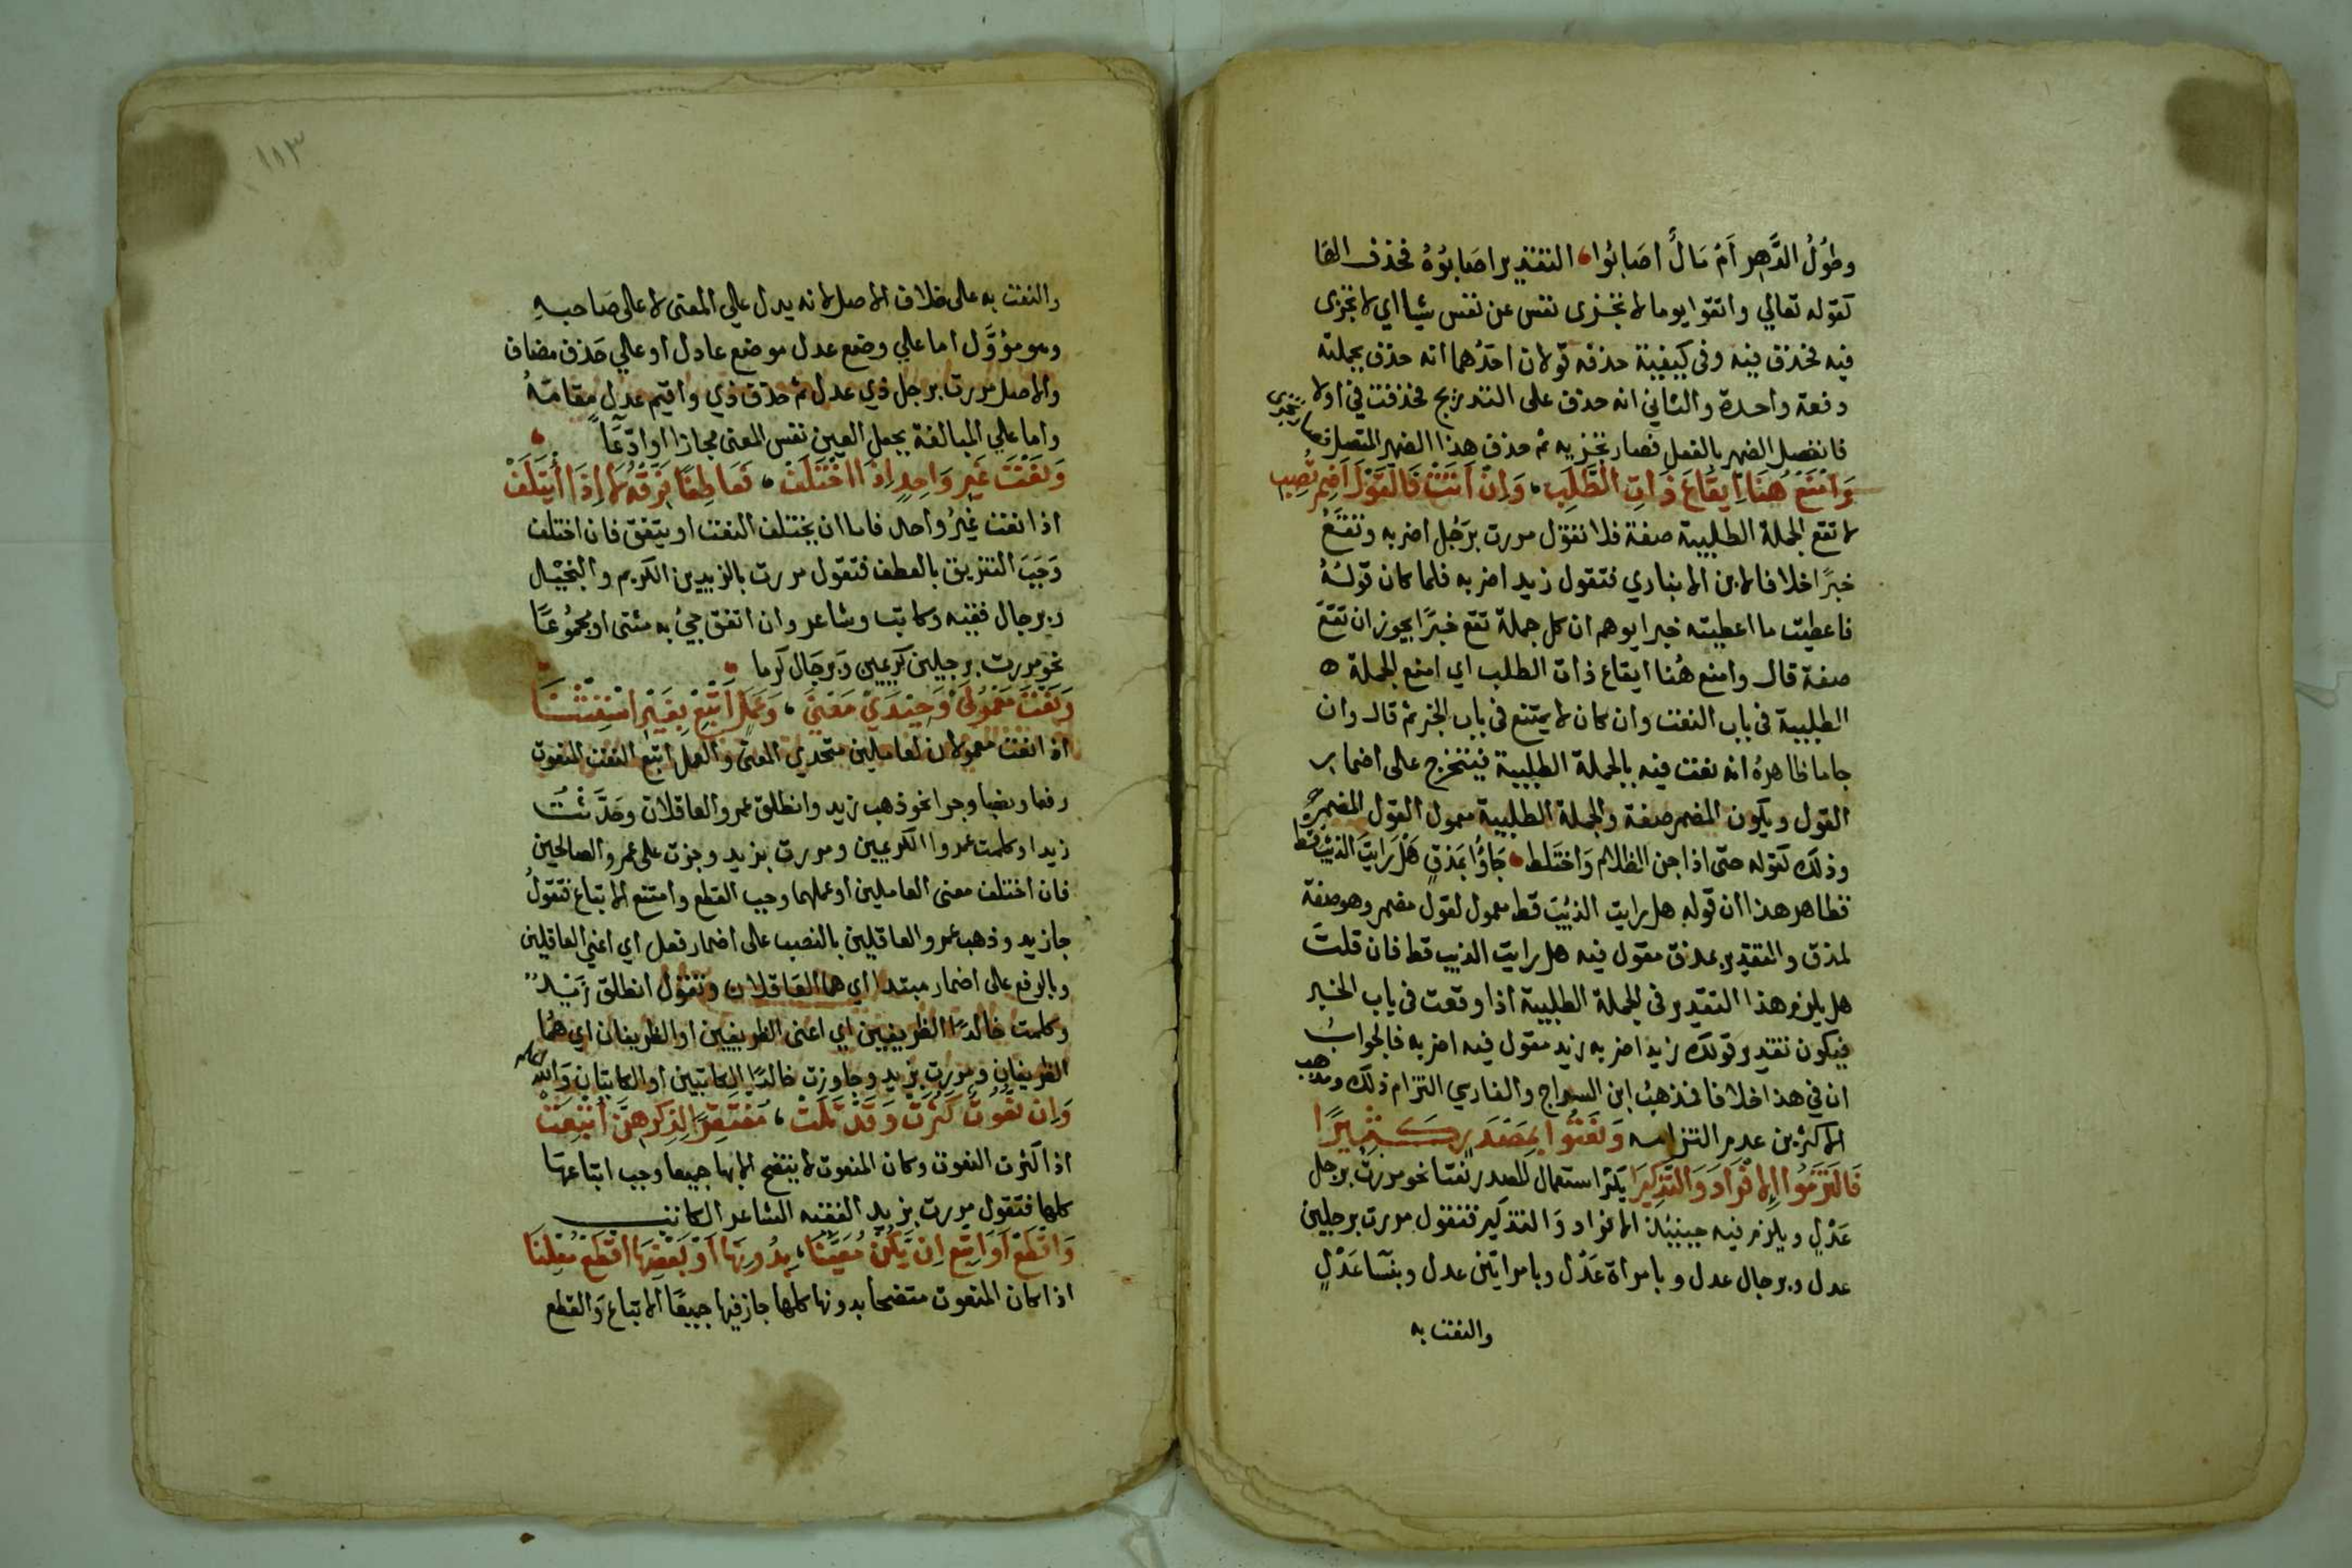 وطُولُ الدَّهرِ أمْ مَالٌ أصَابُوا، التقدير اصابوه فحذف الها
كقوله تعالي واتقوا يوما لا تجزى نفس عن نفس شيا اي لا تجزى
فيه فحذف فيه وفى كيفية حذفه قولان احدهما انه حذف بجملته
دفعة واحدة والثاني انه حذف على التدريج فحذفت في اولا
فانفصل الضمير بالفعل فصار تجزيه ثم حذف هذا الضمير المتصل فصار تجزى
وَامْنَعْ هُنَا اِيقَاعَ ذَاتِ الطَّلَبِ، وَاِنْ اَتَتْ فَالقَوْلَ اَضْمِرْ تُصِبِ
لا تقع الجملة الطلبية صفة فلا تقول مررت برَجُل اضربه وتقعُ
خبرًا خلافا لابن الانباري فتقول زيد اضربه فلما كان قولهُ
فاعطيت ما اعطيته خبرا يوهم ان كل جملة تقع خبرًا يجوز ان تقعَ
صفة قال وامنع هُنا ايقاع ذات الطلب اي امنع الجملة ه
الطلبية فى باب النعت وان كان لا يمتنع فى باب الخبر ثم قال وان
جا ما ظاهرهُ انه نعت فيه بالجملة الطلبية فيتخرج على اضمار
القول ويكون المضمر صفة والجملة الطلبية معمول القول المضمر
وذلك كقوله حتى اذا جن الظلام وَاختَلط، جَاؤُا بمَذقٍ هَلْ رَايتَ الذيب قط
فظاهر هذا ان قوله هل رايت الذيب قط معمول لقول مضمر وهو صفة
لمذق والتقدير بمذق مقول فيه هل رايت الذيب قط فان قلتَ
هل يلزم هذا التقدير فى الجملة الطلبية اذا وقعت فى باب الخبر
فيكون تقدير قولك زيد اضربه زيد مقول فيه اضربه فالجوابُ
ان فى هذا خلافا فمذهبُ ابن السراج والفارسي التزام ذلك ومذهب
الاكثرين عدم التزامه وَنَعَتُوا بِمَصْدَرٍ كَثِيرًا
فَالتَزَمُوا الِافْرَادَ وَالتَّذكِيرَا يكثر استعمال المصدر نعتا نحو مررت برجل
عَدْلٍ ويلزم فيه حينئذ الافراد وَالتذكير فتقول مررت برجلين
عدل وبرجال عدل وبامراة عَدْل وبامراتين عدل وبنسَا عَدْلٍ
والنعت به
١١٣
والنعت به على خلاف الاصل لانه يدل علي المعنى لا على صَاحبهِ
وهو مؤوَّل اما علي وضع عدل موضع عادل او علي حَذف مضاف
والاصل مررت برجل ذي عدل ثم حذف ذي واقيم عدل مقامَهُ
واما علي المبالغة بجعل العين نفس المعنى مجازا او ادّعَا
وَنَعْتَ غَيرِ وَاحِدٍ اِذَا اخْتَلَفْ، فَعَاطِفًا فَرِّقْهُ لَا اِذَا ائْتَلَفْ
اذا نعت غيرُ واحد فاما ان يختلف النعت او يتفق فان اختلف
وَجَبَ التفريق بالعطف فتقول مررت بالزيدين الكريم والبخيْل
وبرجال فقيه وكاتب وشاعر وان اتفق جيُ به مثنى او مجمُوعًا
نحو مررت برجلين كريمين وَبرجَال كرما
وَنَعْتَ مَعْمُولَيْ وَحِيْدَيْ مَعْنَى، وَعَمَلٍ اَتْبِعْ بِغَيْرِ اسْتِثْنَا
اذا نعت معمولان لعاملين متحدي المعنى والعمل اتبع النعت المنعوت
رفعا ونصبا وجرا نحو ذهب زيد وانطلق عمرو العاقلان وحَدَّثْتُ
زيدا وكلمت عمروا الكريمين ومررت بزيد وجزت على عمرو الصالحين
فان اختلف معنى العاملين او عملهما وجب القطع وامتنع الاتباع فتقولُ
جا زيد وذهب عمرو العاقلين بالنصب على اضمار فعل اي اعني العاقلين
وبالرفع على اضمار مبتدا اي هما العَاقلان وتقول انطلق زَيْدٌ
وكلمت خالدًا الظريفين اي اعنى الظريفين او الظريفان اي همُا
الظريفان ومررت بزيد وجاوزت خالدًا الكاتبين او الكاتبان وَالله اعلم
وَاِن نُعُوتٌ كَثُرَتْ وَقَدْ تَلَتْ، مُفْتَقِرًا لِذِكرِهِنَّ اُتْبِعَتْ
اذا كثرت النعوت وكان المنعوت لا يتضح الا بها جميعا وجب اتباعهَا
كلها فتقول مررت بزيد الفقيه الشاعر الكاتب
وَاقْطَعْ اَوَ اتْبِعْ اِن يَكُنْ مُعَيَّنَا، بِدُونِهَا اَوْ بَعْضَهَا اقْطَعْ مُعْلِنَا
اذا كان المنعوت متضحا بدونها كلها جاز فيها جميعًا الاتباع وَالقطع